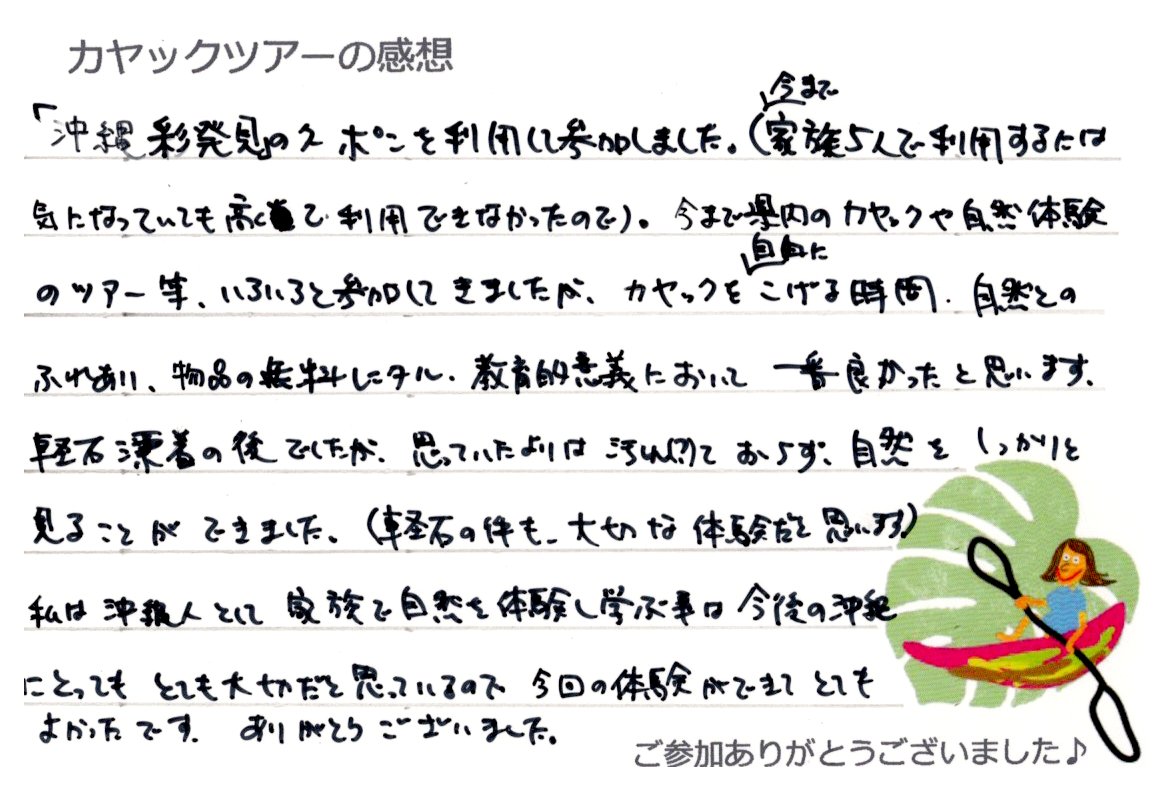 カヤックツアーの感想
今まで
「沖縄彩発見」のクーポンを利用して参加しました。(家族5人で利用するには
気になっていても高くて利用できなかったので)。今まで県内のカヤックや自然体験
自由に
のツアー等、いろいろと参加してきましたが、カヤックをこげる時間、自然との
ふれあい、物品の無料レンタル、教育的意義において一番良かったと思います。
軽石漂着の後でしたが、思っていたよりは汚れておらず、自然をしっかりと
見ることができました。(軽石の件も、大切な体験だと思います)
私は沖縄人として家族で自然を体験し学ぶ事は今後の沖縄
にとってもとても大切だと思っているので今回の体験ができてとても
よかったです。ありがとうございました。
ご参加ありがとうございました♪